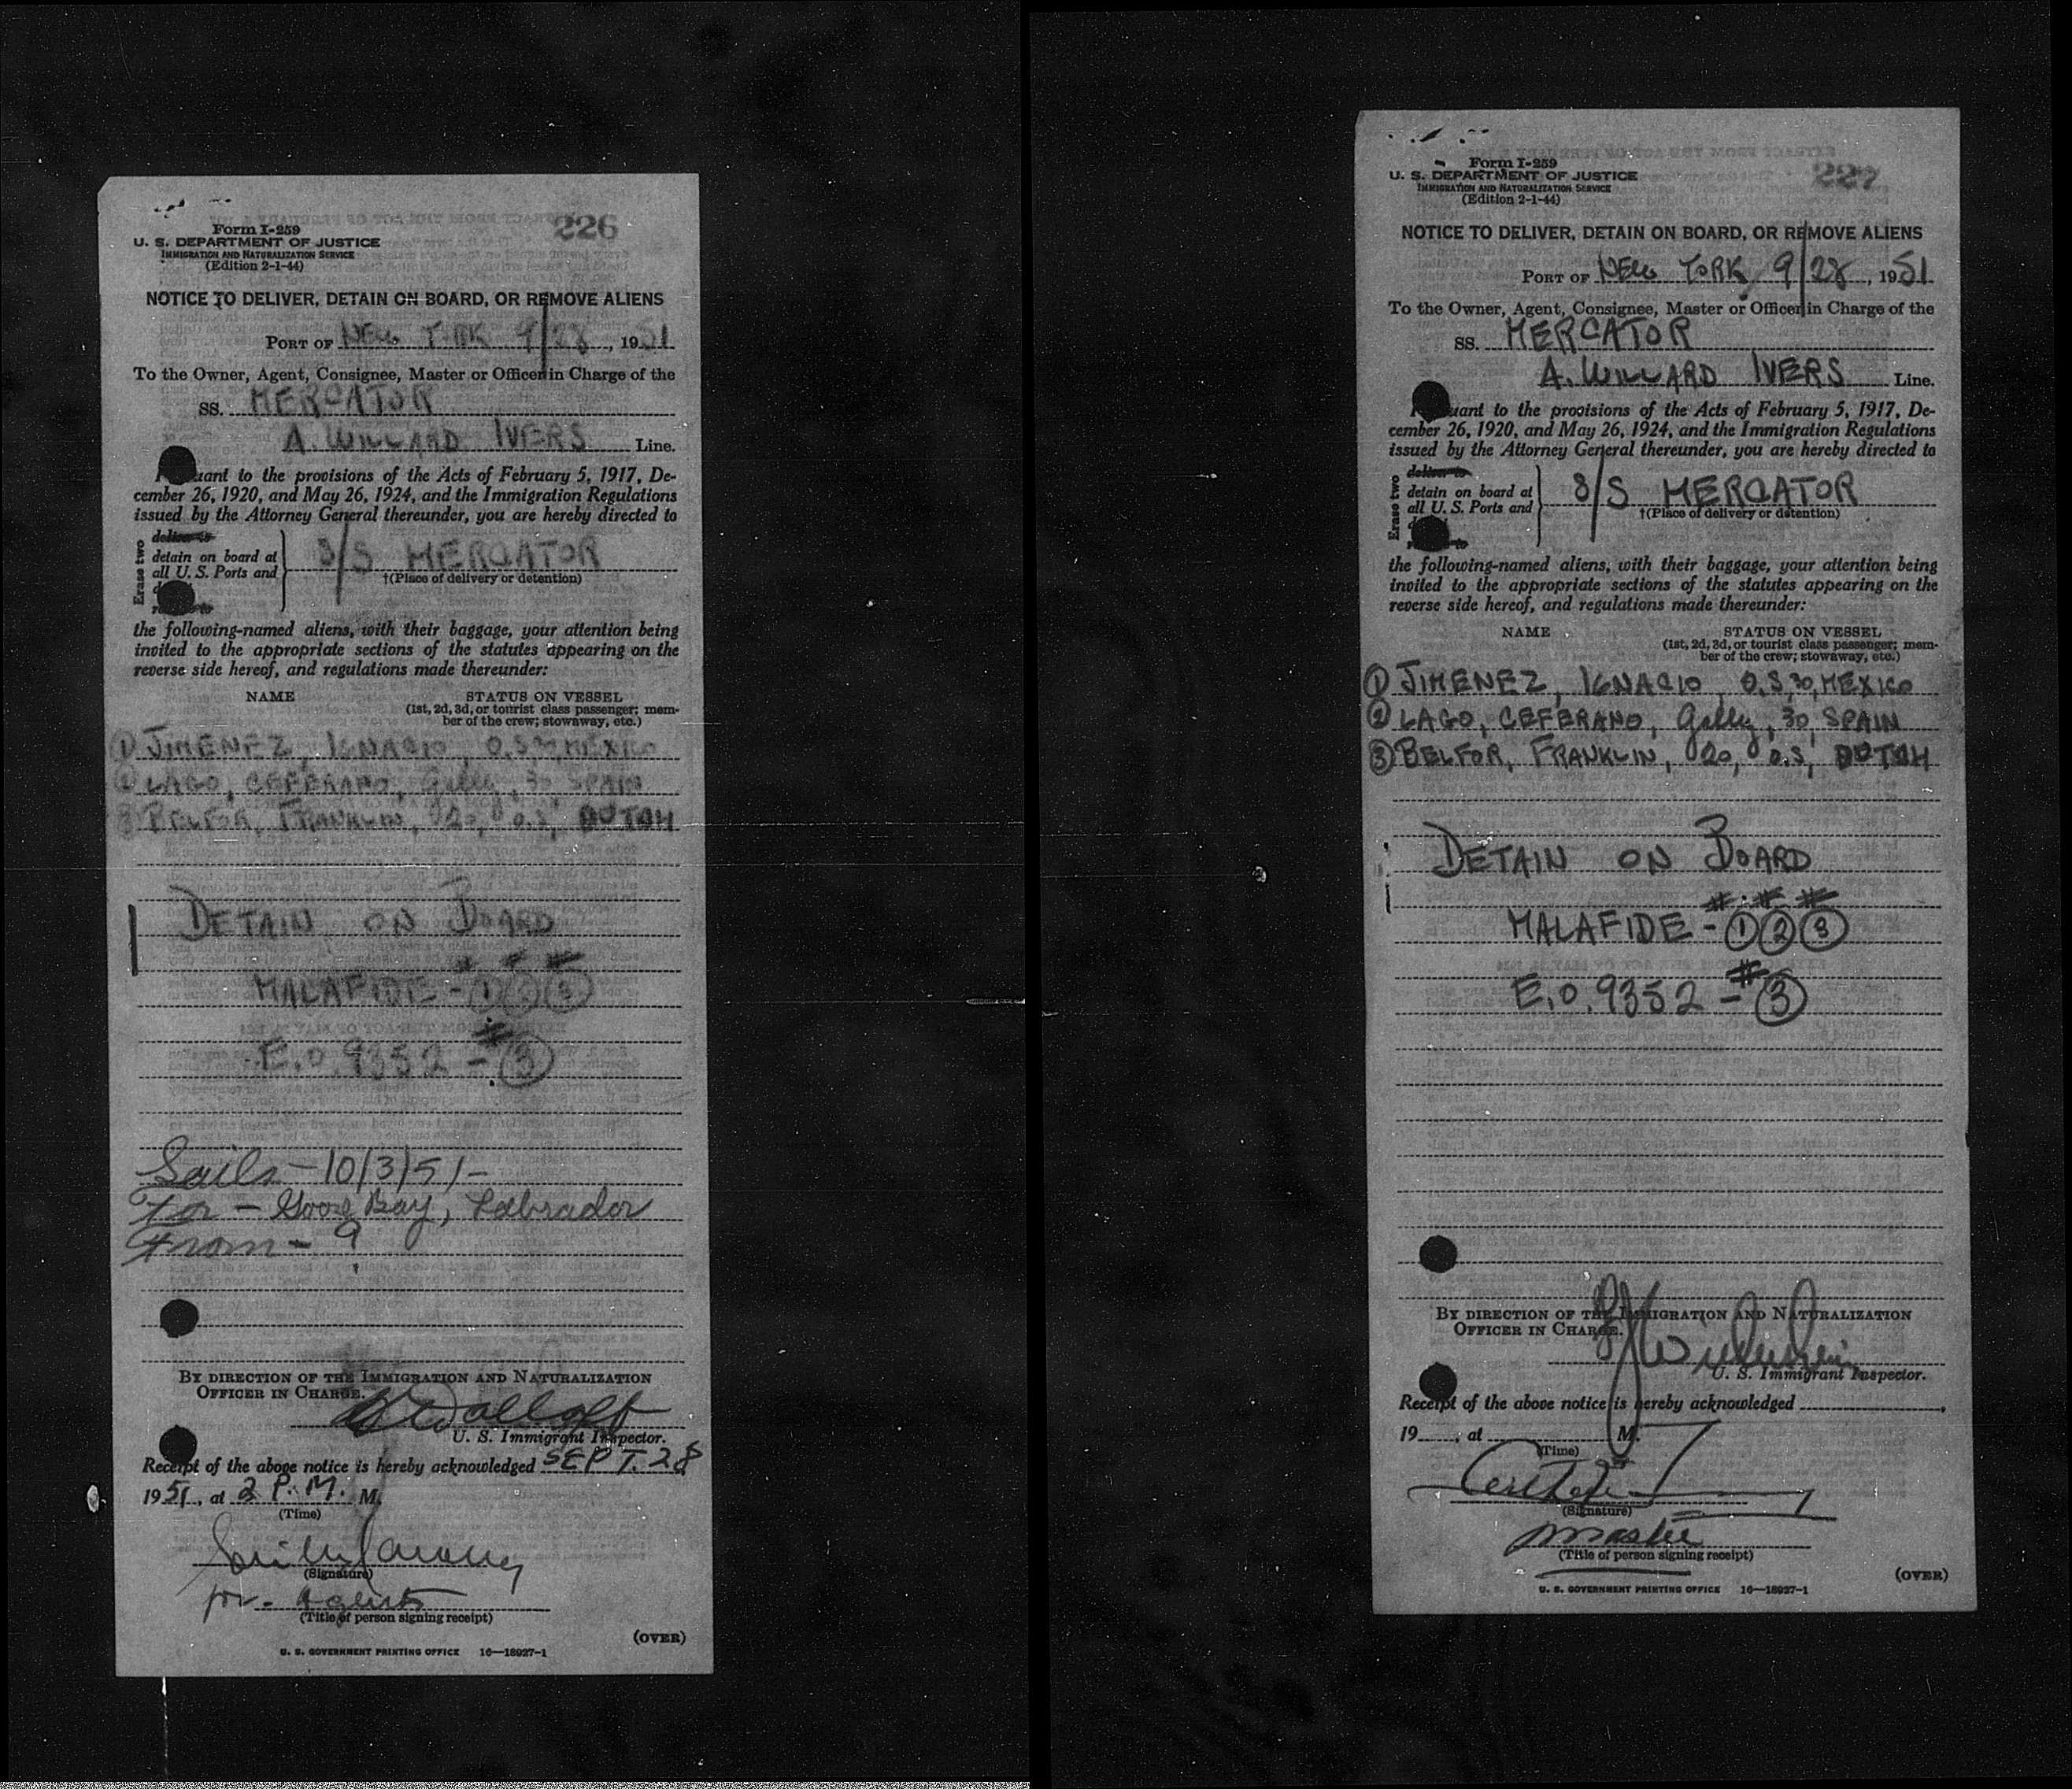 226
Form I-259
U. S. DEPARTMENT OF JUSTICE
IMMIGRATION AND NATURALIZATION SERVICE
(Edition 2-1-44)
NOTICE TO DELIVER, DETAIN ON BOARD, OR REMOVE ALIENS
PORT OF NEW YORK 9/28, 1951
To the Owner, Agent, Consignee, Master or Officer in Charge of the
SS. MERCATOR
A. WILLARD IVERS Line.
uant to the provisions of the Acts of February 5, 1917, De-
cember 26, 1920, and May 26, 1924, and the Immigration Regulations
issued by the Attorney General thereunder, you are hereby directed to
Erase two
deliver to
detain on board at
all U. S. Ports and
S/S MERCATOR
†(Place of delivery or detention)
the following-named aliens, with their baggage, your attention being
invited to the appropriate sections of the statutes appearing on the
reverse side hereof, and regulations made thereunder:
NAME STATUS ON VESSEL
(1st, 2d, 3d, or tourist class passenger; mem-
ber of the crew; stowaway, etc.)
① JIMENEZ, IGNACIO, O.S, 30, MEXICO
② LAGO, CEFERANO, Gally, 30 SPAIN
③ BELFOR, FRANKLIN, 20, O.S, DUTCH
DETAIN ON BOARD
# # #
MALAFIDE - ① ② ③
#
E.O. 9352 - ③
Sails - 10/3/51 -
For - Goose Bay, Labrador
From - 9
BY DIRECTION OF THE IMMIGRATION AND NATURALIZATION
OFFICER IN CHARGE.
U. S. Immigrant Inspector.
Receipt of the above notice is hereby acknowledged SEPT. 28
1951, at 2 P.M. M.
(Time)
(Signature)
for Agents
(Title of person signing receipt)
(OVER)
U. S. GOVERNMENT PRINTING OFFICE 16—18927-1
227
Form I-259
U. S. DEPARTMENT OF JUSTICE
IMMIGRATION AND NATURALIZATION SERVICE
(Edition 2-1-44)
NOTICE TO DELIVER, DETAIN ON BOARD, OR REMOVE ALIENS
PORT OF NEW YORK 9/28, 1951
To the Owner, Agent, Consignee, Master or Officer in Charge of the
SS. MERCATOR
A. WILLARD IVERS Line.
uant to the provisions of the Acts of February 5, 1917, De-
cember 26, 1920, and May 26, 1924, and the Immigration Regulations
issued by the Attorney General thereunder, you are hereby directed to
Erase two
deliver to
detain on board at
all U. S. Ports and
S/S MERCATOR
†(Place of delivery or detention)
the following-named aliens, with their baggage, your attention being
invited to the appropriate sections of the statutes appearing on the
reverse side hereof, and regulations made thereunder:
NAME STATUS ON VESSEL
(1st, 2d, 3d, or tourist class passenger; mem-
ber of the crew; stowaway, etc.)
① JIMENEZ, IGNACIO, O.S, 30, MEXICO
② LAGO, CEFERANO, Gally, 30, SPAIN
③ BELFOR, FRANKLIN, 20, O.S, DUTCH
DETAIN ON BOARD
# # #
MALAFIDE - ① ② ③
#
E.O. 9352 - ③
BY DIRECTION OF THE IMMIGRATION AND NATURALIZATION
OFFICER IN CHARGE.
U. S. Immigrant Inspector.
Receipt of the above notice is hereby acknowledged
19 , at M.
(Time)
(Signature)
Master
(Title of person signing receipt)
(OVER)
U. S. GOVERNMENT PRINTING OFFICE 16—18927-1